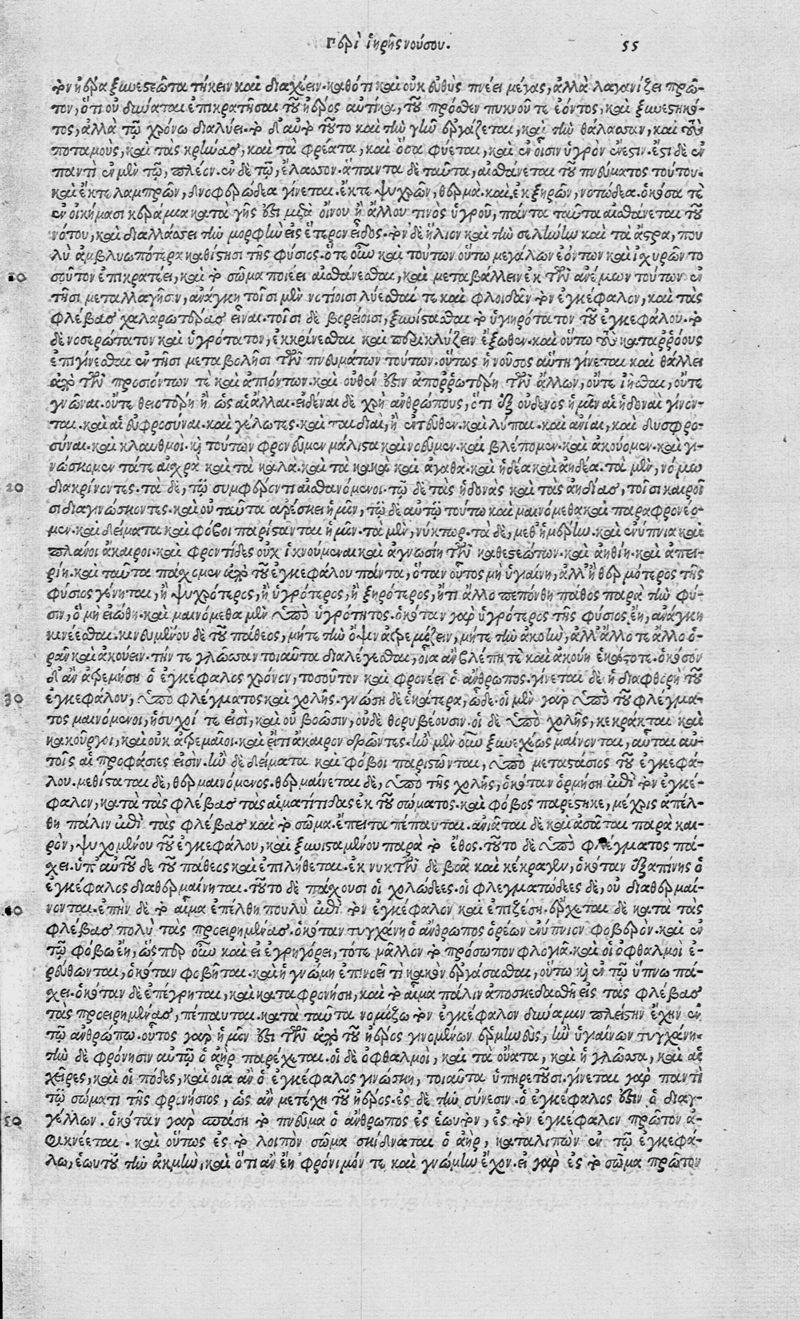 Περὶ ἱηρῆς νούσου. 55
τὸν ἠέρα ξυνεστεῶτα τήκειν καὶ διαχέειν. καθότι καὶ οὐκ εὐθὺς πνέει μέγας, ἀλλὰ λαγανίζει πρῶ-
τον, ὅτι οὐ δύναται ἐπικρατῆσαι τοῦ ἠέρος αὐτίκα, τοῦ πρόσθεν πυκνοῦ τε ἐόντος, καὶ ξυνεστηκό-
τος, ἀλλὰ τῷ χρόνῳ διαλύει. τὸ δ' αὐτὸ τοῦτο καὶ τὴν γῆν ἐργάζεται, καὶ τὴν θάλασσαν, καὶ τοὺς
ποταμοὺς, καὶ τὰς κρήνας, καὶ τὰ φρέατα, καὶ ὅσα φύεται, καὶ ἐν οἷσιν ὑγρόν ἔνεστιν. ἔστι δὲ ἐν
παντὶ ἐν μὲν τῷ, πλέον. ἐν δὲ τῷ, ἔλασσον. ἅπαντα δὲ ταῦτα, αἰσθάνεται τοῦ πνεύματος τούτου.
καὶ ἔκ τε λαμπρῶν, δνοφερώδεα γίνεται. ἔκ τε ψυχρῶν, θερμα. καὶ ἐκ ξηρῶν, νοτώδεα. ὁκόσα τὲ
ἐν οἰκήμασι κεράμια κατα γῆς ἐστι μεστὰ οἴνου ἢ ἄλλου τινὸς ὑγροῦ, πάντα ταῦτα αἰσθάνεται τοῦ
νότου, καὶ διαλλάσσει τὴν μορφὴν εἰς ἕτερον εἶδος. τὸν δὲ ἥλιον καὶ τὴν σελήνην καὶ τὰ ἄστρα, που
λὺ ἀμβλυωπότερα καθίστησι τῆς φύσιος. ὅτε οὖν καὶ τούτων οὕτω μεγάλων ἐόντων καὶ ἰσχυρῶν το
10 σοῦτον ἐπικρατέει, καὶ τὸ σῶμα ποιέει αἰσθάνεσθαι, καὶ μεταβάλλειν ἐκ τῶν ἀνέμων τούτων ἐν
τῇσι μεταλλαγῇσιν, ἀνάγκη τοῖσι μὲν νοτίοισι λύεσθαί τε καὶ φλοιδᾶν τὸν ἐγκέφαλον, καὶ τὰς
φλέβας χαλαρωτέρας εἶναι. τοῖσι δὲ βορείοισι, ξυνίστασθαι τὸ ὑγιηρότατον τοῦ ἐγκεφάλου. τὸ
δὲ νοσερώτατον καὶ ὑγρότατον, ἐκκρίνεσθαι καὶ περικλύζειν ἔξωθεν. καὶ οὕτω τοὺς καταῤῥόους
ἐπιγίνεσθαι ἐν τῇσι μεταβολῇσι τῶν πνευμάτων τούτων. οὕτως ἡ νοῦσος αὕτη γίνεται καὶ θάλλει
ἀπὸ τῶν προσιόντων τε καὶ ἀπιόντων. καὶ οὐθέν ἐστιν ἀπορρωτέρη τῶν ἄλλων, οὔτε ἰῆσθαι, οὔτε
γνῶναι. οὔτε θειοτέρη ἢ ὡς αἱ ἄλλαι. εἰδέναι δὲ χρὴ ἀνθρώπους, ὅτι ἐξ οὐδενὸς ἡμῖν αἱ ἡδοναὶ γίνον-
ται. καὶ αἱ εὐφροσύναι. καὶ γέλωτες. καὶ παιδιαί, ἢ ἐντεῦθεν. καὶ λῦπαι. καὶ ἀνίαι, καὶ δυσφρο-
σύναι. καὶ κλαυθμοί. κὴ τούτῳ φρονεῦμεν μάλιστα καὶ νοεῦμεν. καὶ βλέπομεν. καὶ ἀκούομεν. καὶ γι-
νώσκομεν τά τε αἰσχρὰ καὶ τὰ καλά. καὶ τὰ κακὰ καὶ ἀγαθά. καὶ ἡδέα καὶ ἀηδέα. τὰ μὲν, νόμῳ
20 διακρίνοντες. τὰ δὲ, τῷ συμφέροντι αἰσθανόμενοι. τῷ δὲ τὰς ἡδονὰς καὶ τὰς ἀηδίας, τοῖσι καιροῖ
σι διαγινώσκοντες. καὶ οὐ ταῦτα ἀρέσκει ἡμῖν, τῷ δὲ αὐτῷ τούτῳ καὶ μαινόμεθα καὶ παραφρονέο-
μεν. καὶ δείματα καὶ φόβοι παρίστανται ἡμῖν. τὰ μὲν, νύκτωρ. τὰ δὲ, μεθ' ἡμέρην. καὶ ἐνύπνια καὶ
πλάνοι ἄκαιροι. καὶ φροντίδες οὐχ ἱκνούμεναι καὶ ἀγνωσίη τῶν καθεστεώτων. καὶ ἀηθίη. καὶ ἀπει-
ρίη. καὶ ταῦτα πάσχομεν ἀπὸ τοῦ ἐγκεφάλου πάντα, ὅταν οὗτος μὴ ὑγιαίνῃ, ἀλλ' ἢ θερμότερος τῆς
φύσιος γένηται, ἢ ψυχρότερος, ἢ ὑγρότερος, ἢ ξηρότερος, ἤ τι ἄλλο πεπόνθῃ πάθος παρὰ τὴν φύ-
σιν, ὃ μὴ εἰώθῃ. καὶ μαινόμεθα μὲν ὑπὸ ὑγρότητος. ὁκόταν γὰρ ὑγρότερος τῆς φύσιος ἔῃ, ἀνάγκη
κινέεσθαι. κινευμένου δὲ τοῦ πάθεος, μήτε τὴν ὄψιν ἀτρεμίζειν, μήτε τὴν ἀκοήν, ἀλλ' ἄλλοτε ἄλλο ὁ-
ρᾶν καὶ ἀκούειν. τήν τε γλῶσσαν τοιαῦτα διαλέγεσθαι, οἷα ἂν βλέπῃ τε καὶ ἀκούῃ ἑκάστοτε. ὁκόσον
δ' ἂν ἀτρεμήσῃ ὁ ἐγκέφαλος χρόνον, τοσοῦτον καὶ φρονέει ὁ ἄνθρωπος. γίνεται δὲ ἡ διαφθορὴ τοῦ
30 ἐγκεφάλου, ὑπὸ φλέγματος καὶ χολῆς. γνώσῃ δὲ ἑκάτερα, ὧδε. οἱ μὲν γὰρ ὑπὸ τοῦ φλέγμα-
τος μαινόμενοι, ἥσυχοί τέ εἰσι, καὶ οὐ βοῶσιν, οὐδὲ θορυβέουσιν. οἱ δὲ ὑπὸ χολῆς, κεκράκται καὶ
κακοῦργοι, καὶ οὐκ ἀτρεμαῖοι. καὶ ἀεί τι ἄκαιρον δρῶντες. ἢν μὲν οὖν ξυνεχέως μαίνονται, αὗται αὐ-
τοῖς αἱ προφάσιές εἰσιν. ἢν δὲ δείματα καὶ φόβοι παριστῶνται, ὑπὸ μεταστάσιος τοῦ ἐγκεφά-
λου. μεθίσταται δὲ, θερμαινόμενος. θερμαίνεται δὲ, ὑπὸ τῆς χολῆς, ὁκόταν ὁρμήσῃ ἐπὶ τὸν ἐγκέ-
φαλον, κατὰ τὰς φλέβας τὰς αἱματίτιδας ἐκ τοῦ σώματος. καὶ φόβος παρέστηκε, μέχρις ἀπέλ-
θῃ πάλιν ἐπὶ τὰς φλέβας καὶ τὸ σῶμα. ἔπειτα πέπαυται. ἀνιᾶται δὲ καὶ ἀσᾶται παρὰ και-
ρὸν, ψυχομένου τοῦ ἐγκεφάλου, καὶ ξυνισταμένου παρὰ τὸ ἔθος. τοῦτο δὲ ὑπὸ φλέγματος πάσ-
χει. ὑπ' αὐτοῦ δὲ τοῦ πάθεος καὶ ἐπιλήθεται. ἐκ νυκτῶν δὲ βοᾷ καὶ κέκραγεν, ὁκόταν ἐξαπίνης ὁ
ἐγκέφαλος διαθερμαίνηται. τοῦτο δὲ πάσχουσι οἱ χολώδεες. οἱ φλεγματώδεες δὲ, οὐ διαθερμαί-
40 νονται. ἐπὴν δὲ τὸ αἷμα ἐπέλθῃ πουλὺ ἐπὶ τὸν ἐγκέφαλον καὶ ἐπιζέσῃ. ἔρχεται δὲ κατὰ τὰς
φλέβας πολὺ τὰς προειρημένας. ὁκόταν τυγχάνῃ ὁ ἄνθρωπος ὁρέων ἐνύπνιον φοβερὸν. καὶ ἐν
τῷ φόβῳ ἔῃ, ὥσπερ οὖν καὶ εἰ ἐγρηγόρει, τότε μᾶλλον τὸ πρόσωπον φλογιᾷ. καὶ οἱ ὀφθαλμοὶ ἐ-
ρεύθονται, ὁκόταν φοβῆται. καὶ ἡ γνώμη ἐπινοεῖ τὶ κακὸν ἐργάσασθαι, οὕτω κὴ ἐν τῷ ὕπνῳ πά-
χει. ὁκόταν δὲ ἐπέγρηται, καὶ καταφρονήσῃ, καὶ τὸ αἷμα πάλιν ἀποσκεδασθῇ εἰς τὰς φλέβας
τὰς προειρημένας, πέπαυται. κατὰ ταῦτα νομίζω τὸν ἐγκέφαλον δύναμιν πλείστην ἔχειν ἐν
τῷ ἀνθρώπῳ. οὗτος γὰρ ἡμῖν ἐστι τῶν ἀπὸ τοῦ ἠέρος γινομένων ἑρμηνεὺς, ἢν ὑγιαίνων τυγχάνῃ.
τὴν δὲ φρόνησιν αὐτῷ ὁ ἀὴρ παρέχεται. οἱ δὲ ὀφθαλμοὶ, καὶ τὰ οὔατα, καὶ ἡ γλῶσσα, καὶ αἱ
χεῖρες, καὶ οἱ πόδες, καὶ οἷα ἂν ὁ ἐγκέφαλος γινώσκῃ, τοιαῦτα ὑπηρετοῦσι. γίνεται γὰρ παντὶ
τῷ σώματι τῆς φρονήσιος, ὡς ἂν μετέχῃ τοῦ ἠέρος. ἐς δὲ τὴν σύνεσιν. ὁ ἐγκέφαλός ἐστιν ὁ διαγ-
50 γέλλων. ὁκόταν γὰρ σπάσῃ τὸ πνεῦμα ὁ ἄνθρωπος ἐς ἑωυτὸν, ἐς τὸν ἐγκέφαλον πρῶτον ἀ-
φικνέεται. καὶ οὕτως ἐς τὸ λοιπὸν σῶμα σκίδναται ὁ ἀὴρ, καταλιπὼν ἐν τῷ ἐγκεφά-
λῳ, ἑωυτοῦ τὴν ἀκμὴν, καὶ ὅτι ἂν ἔῃ φρόνιμόν τε καὶ γνώμην ἔχον. εἰ γὰρ ἐς τὸ σῶμα πρῶτον